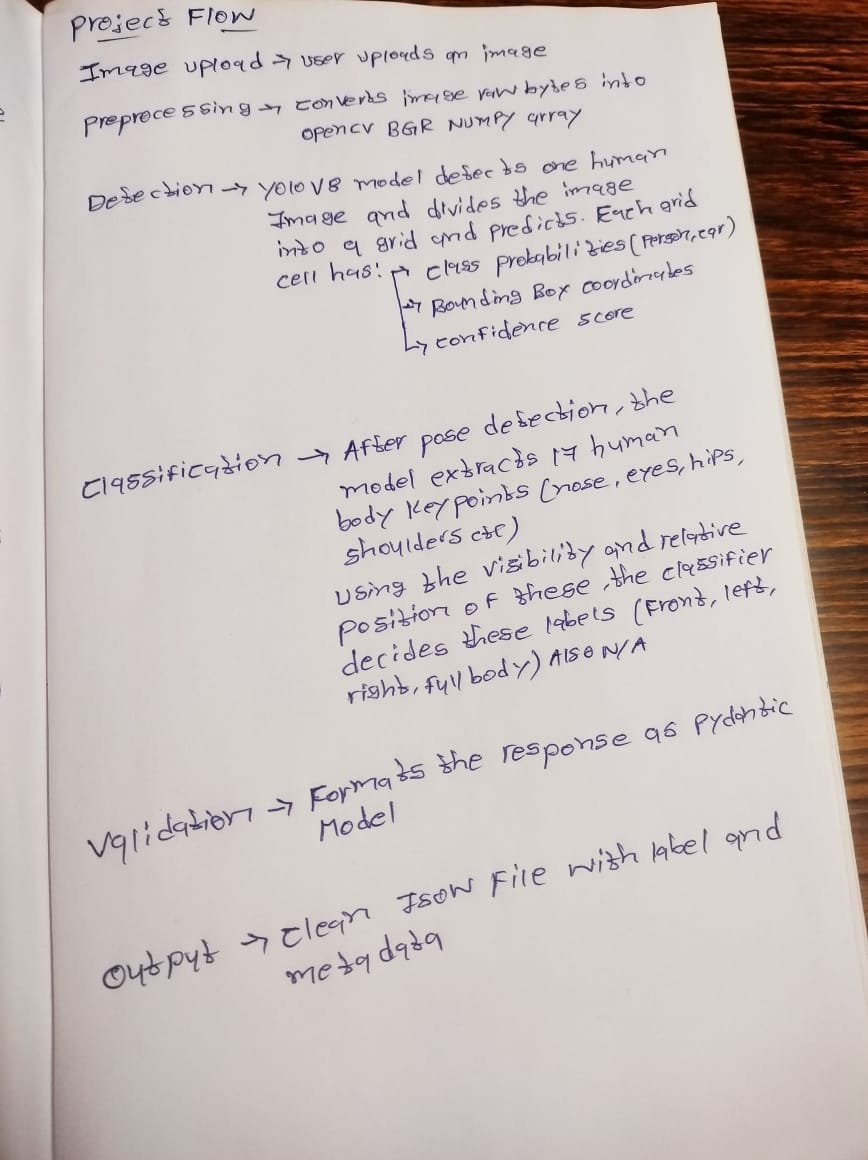 Project Flow
Image upload → user uploads an image
Preprocessing → converts image raw bytes into
opencv BGR NUMPY array
Detection → YOLO V8 model detects one human
Image and divides the image
into a grid and predicts. Each grid
cell has: → class probabilities (person, car)
→ Bounding Box coordinates
→ confidence score
Classification → After pose detection, the
model extracts 17 human
body key points (nose, eyes, hips,
shoulders etc)
using the visibility and relative
position of these, the classifier
decides these labels (Front, left,
right, full body) Also N/A
Validation → Formats the response as pydantic
Model
Output → clean JSON File with label and
meta data